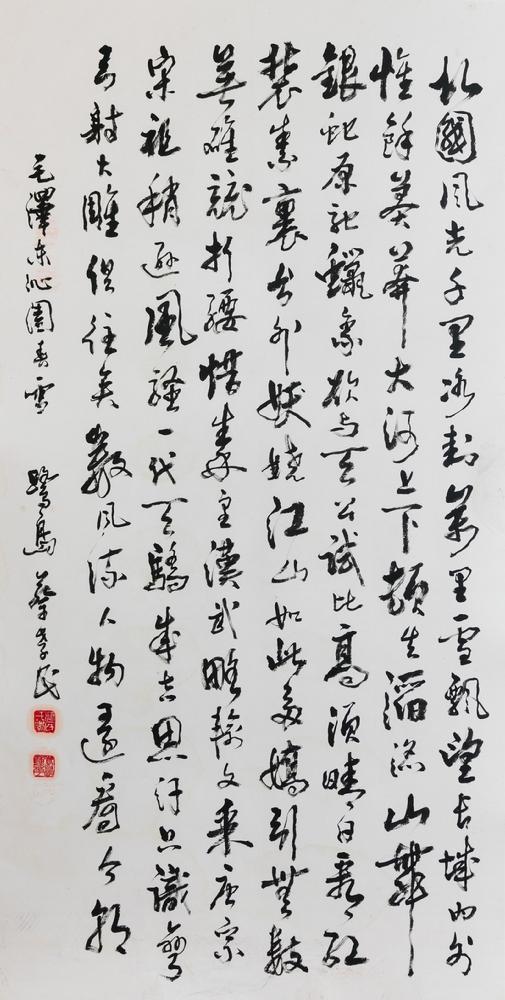 北國风光千里冰封萬里雪飄望长城内外
惟餘莽莽大河上下頓失滔滔山舞
銀蛇原馳蠟象欲与天公試比高須晴日看红
裝素裹分外妖嬈江山如此多嬌引無數
英雄競折腰惜秦皇漢武略輸文采唐宗
宋祖稍逊風騷一代天驕成吉思汗只識彎
弓射大雕俱往矣數风流人物還看今朝
毛澤东沁園春雪 鷺島 蔡孝民